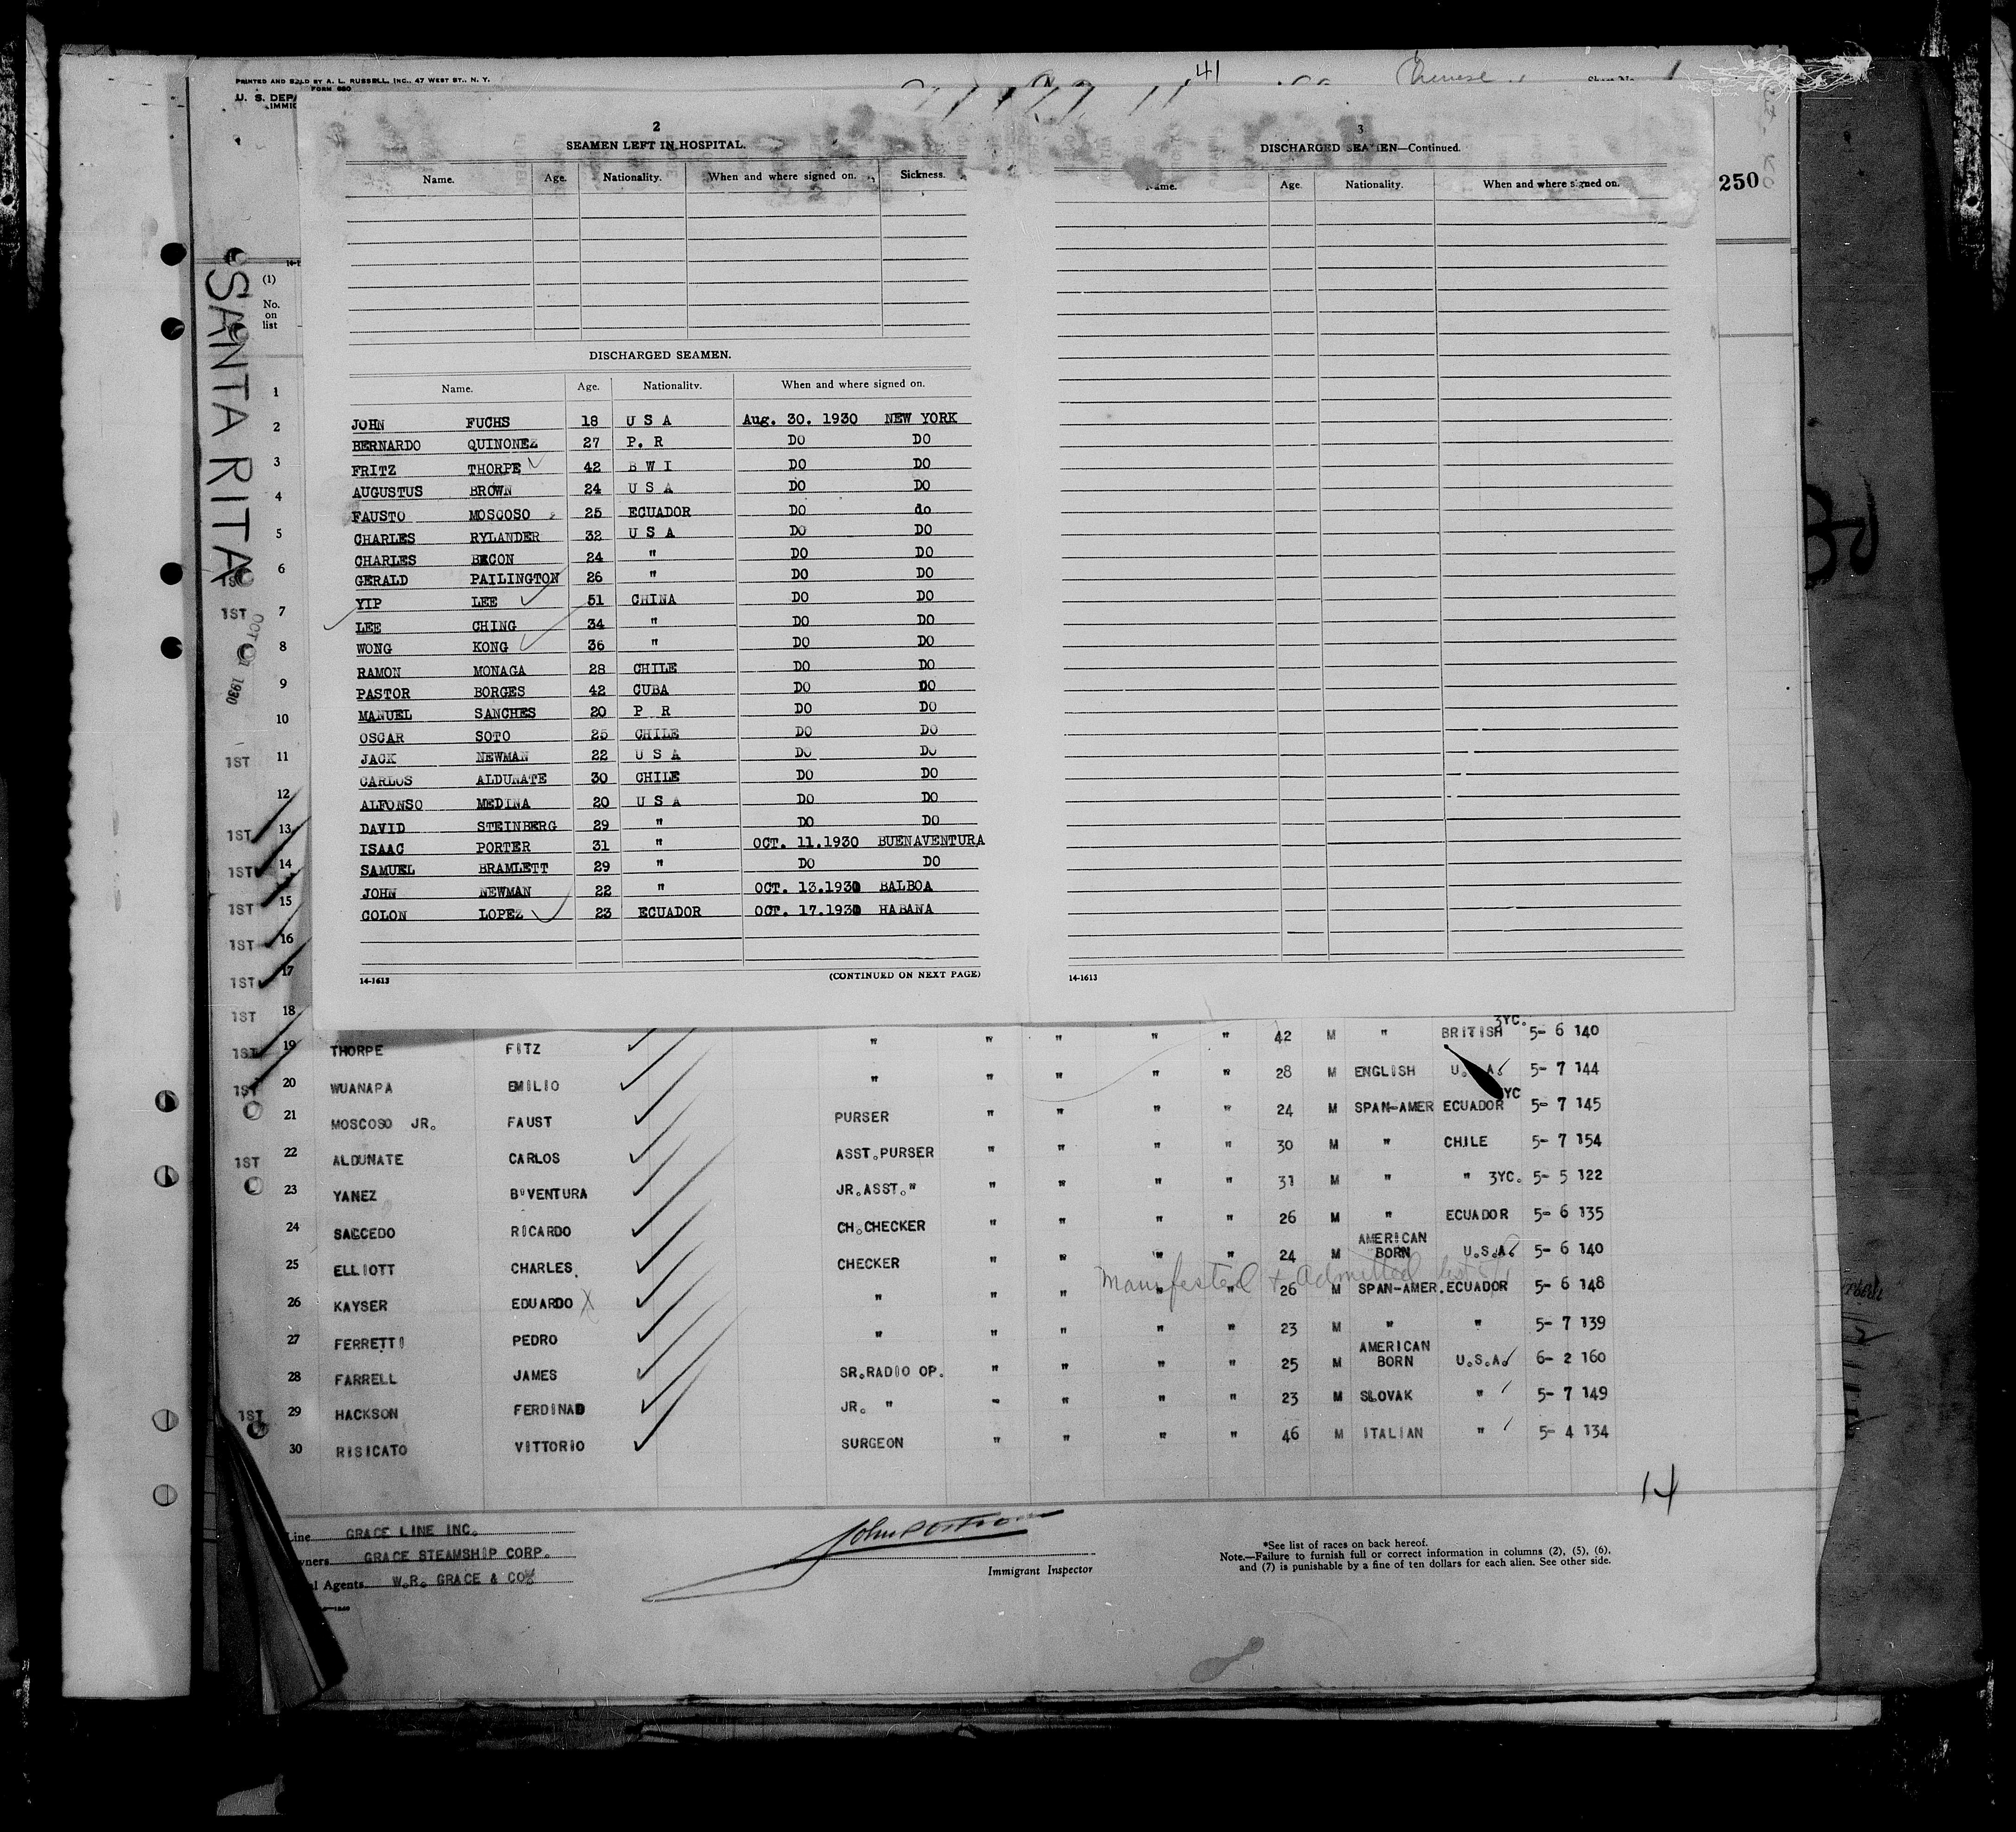 PRINTED AND SOLD BY A. L. RUSSELL, INC., 47 WEST ST., N. Y.
FORM 680
U. S. DEPA
IMMIG
41
Chinese
1
250
SANTA RITA
(1)
No.
on
list
2
SEAMEN LEFT IN HOSPITAL.
Name. Age. Nationality. When and where signed on. Sickness.
DISCHARGED SEAMEN.
Name. Age. Nationality. When and where signed on.
JOHN FUCHS 18 U S A Aug. 30. 1930 NEW YORK
BERNARDO QUINONEZ 27 P. R DO DO
FRITZ THORPE 42 B W I DO DO
AUGUSTUS BROWN 24 U S A DO DO
FAUSTO MOSCOSO 25 ECUADOR DO do
CHARLES RYLANDER 32 U S A DO DO
CHARLES BACON 24 " DO DO
GERALD PAILINGTON 26 " DO DO
YIP LEE 51 CHINA DO DO
LEE CHING 34 " DO DO
WONG KONG 36 " DO DO
RAMON MONAGA 28 CHILE DO DO
PASTOR BORGES 42 CUBA DO DO
MANUEL SANCHES 20 P R DO DO
OSCAR SOTO 25 CHILE DO DO
JACK NEWMAN 22 U S A DO DO
CARLOS ALDUNATE 30 CHILE DO DO
ALFONSO MEDINA 20 U S A DO DO
DAVID STEINBERG 29 " DO DO
ISAAC PORTER 31 " OCT. 11.1930 BUENAVENTURA
SAMUEL BRAMLETT 29 " DO DO
JOHN NEWMAN 22 " OCT. 13.1930 BALBOA
COLON LOPEZ 23 ECUADOR OCT. 17.1930 HABANA
14-1613 (CONTINUED ON NEXT PAGE)
3
DISCHARGED SEAMEN—Continued.
Name. Age. Nationality. When and where signed on.
14-1613
1
2
3
4
5
1ST 6
1ST 7
OCT 1930
8
9
10
1ST 11
12
1ST 13
1ST 14
1ST 15
1ST 16
1ST 17
1ST 18
1ST 19 THORPE FITZ " " " " " 42 M " BRITISH 3YC. 5- 6 140
1ST 20 WUANAPA EMILIO " " " " " 28 M ENGLISH U.S.A. 5- 7 144
21 MOSCOSO JR. FAUST PURSER " " " " 24 M SPAN-AMER ECUADOR YC 5- 7 145
1ST 22 ALDUNATE CARLOS ASST.PURSER " " " " 30 M " CHILE 5- 7 154
23 YANEZ B'VENTURA JR.ASST." " " " " 31 M " " 3YC. 5- 5 122
24 SALCEDO RICARDO CH.CHECKER " " " " 26 M " ECUADOR 5- 6 135
25 ELLIOTT CHARLES. CHECKER " " " " 24 M AMERICAN BORN U.S.A. 5- 6 140
Manifested + Admitted
26 KAYSER EDUARDO X " " " " " 26 M SPAN-AMER. ECUADOR 5- 6 148
27 FERRETTI PEDRO " " " " " 23 M " " 5- 7 139
28 FARRELL JAMES SR.RADIO OP. " " " " 25 M AMERICAN BORN U.S.A. 6- 2 160
1ST 29 HACKSON FERDINAD JR. " " " " " 23 M SLOVAK " 5- 7 149
30 RISICATO VITTORIO SURGEON " " " " 46 M ITALIAN " 5- 4 134
14
Line GRACE LINE INC.
wners GRACE STEAMSHIP CORP.
al Agents W.R. GRACE & CO
Immigrant Inspector
*See list of races on back hereof.
Note.—Failure to furnish full or correct information in columns (2), (5), (6),
and (7) is punishable by a fine of ten dollars for each alien. See other side.